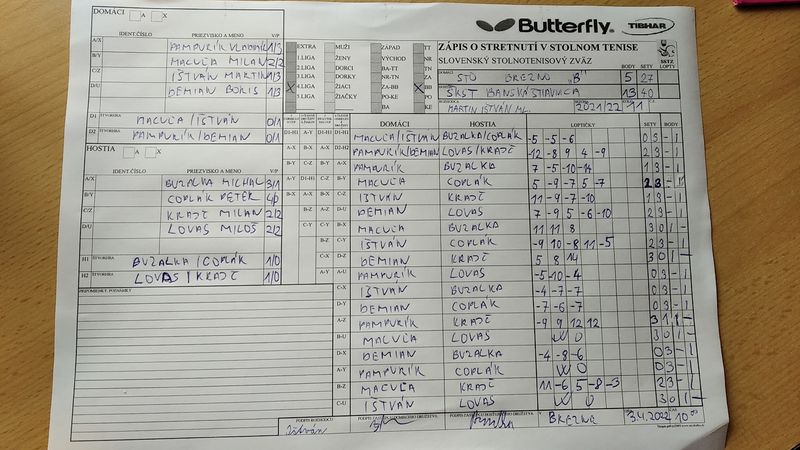 DOMÁCI A X
IDENT.ČÍSLO PRIEZVISKO A MENO V/P
A/X PAMPURÍK VLADIMÍR 1/3
B/Y MACUĽA MILAN 2/2
C/Z IŠTVÁN MARTIN 1/3
D/U DEMIAN BORIS 1/3
D1 ŠTVORHRA MACUĽA/IŠTVÁN 0/1
D2 ŠTVORHRA PAMPURÍK/DEMIAN 0/1
HOSTIA A X
IDENT.ČÍSLO PRIEZVISKO A MENO V/P
A/X BUZALKA MICHAL 3/1
B/Y COPLÁK PETER 4/0
C/Z KRAJČ MILAN 2/2
D/U LOVAS MILOŠ 2/2
H1 ŠTVORHRA BUZALKA/COPLÁK 1/0
H2 ŠTVORHRA LOVAS/KRAJČ 1/0
PRIPOMIENKY, PODMIENKY
Butterfly TIBHAR
ZÁPIS O STRETNUTÍ V STOLNOM TENISE
SLOVENSKÝ STOLNOTENISOVÝ ZVÄZ
SSTZ
EXTRA MUŽI ZÁPAD TT
1.LIGA ŽENY VÝCHOD NR
2.LIGA DORCI BA-TT TN
3.LIGA DORKY NR-TN ZA
X 4.LIGA ŽIACI ZA-BB X BB
5.LIGA ŽIAČKY PO-KE PO
BA KE
DOMÁCI STO BREZNO "B" BODY 5 SETY 27
ŠKST BANSKÁ ŠTIAVNICA 13 40
MARTIN IŠTVÁN ML. 2021/22 11
DOMÁCI HOSTIA LOPTIČKY SETY BODY
D1-H1 MACUĽA/IŠTVÁN BUZALKA/COPLÁK -5 -5 -6 0 3 - 1
D2-H2 PAMPURÍK/DEMIAN LOVAS/KRAJČ -12 -8 9 4 -9 2 3 - 1
A-X PAMPURÍK BUZALKA 7 -5 -10 -14 1 3 - 1
B-Y MACUĽA COPLÁK 5 -9 -7 5 -7 2 3 - 1
C-Z IŠTVÁN KRAJČ 11 -9 -7 -10 1 3 - 1
D-U DEMIAN LOVAS 7 -9 5 -6 -10 2 3 - 1
B-X MACUĽA BUZALKA 11 11 8 3 0 1 -
C-Y IŠTVÁN COPLÁK -9 10 -8 11 -5 2 3 - 1
D-Z DEMIAN KRAJČ 5 8 14 3 0 1 -
A-U PAMPURÍK LOVAS -5 -10 -4 0 3 - 1
C-X IŠTVÁN BUZALKA -4 -7 -7 0 3 - 1
D-Y DEMIAN COPLÁK -7 -6 -7 0 3 - 1
A-Z PAMPURÍK KRAJČ -9 9 12 12 3 1 1 -
B-U MACUĽA LOVAS W O 3 0 1 -
D-X DEMIAN BUZALKA -4 -8 -6 0 3 - 1
A-Y PAMPURÍK COPLÁK W O 0 3 - 1
B-Z MACUĽA KRAJČ 11 -6 5 -8 -3 2 3 - 1
C-U IŠTVÁN LOVAS W O 3 0 1 -
PODPIS ROZHODCU Ištván
V BREZNE 3.4.2022 10 00